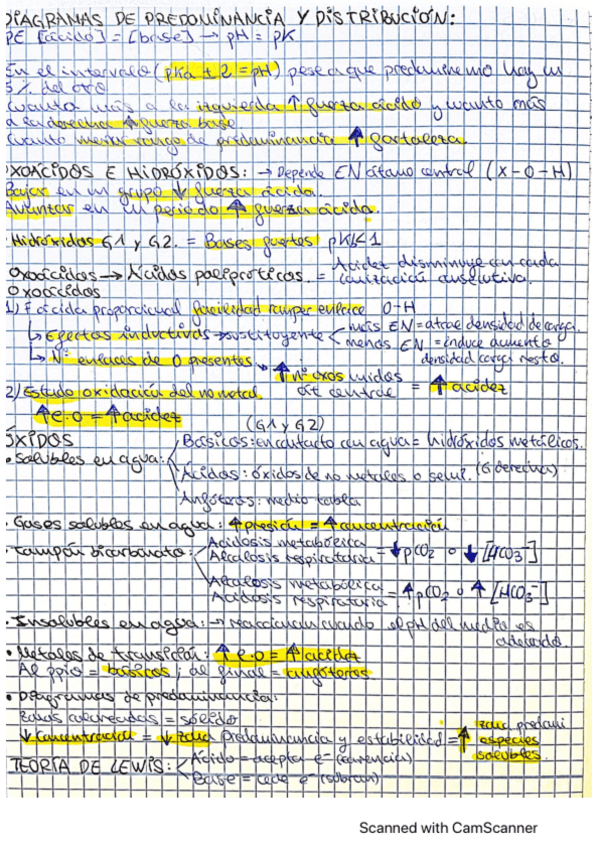 DIAGRAMAS DE PREDOMINANCIA Y DISTRIBUCIÓN:
PE [ácido] = [base] → pH = pK
En el intervalo (pKa ± 2 = pH) pese a que predomine no hay un
5% del otro
Cuanto más a la izquierda ↑ fuerza ácido y cuanto más
a la derecha ↑ fuerza base.
Cuanto menor rango de predominancia ↑ fortaleza.
OXOÁCIDOS E HIDRÓXIDOS: → Depende EN átomo central (X-O-H)
Bajar en un grupo ↓ fuerza ácida.
Aumentar en un periodo ↑ fuerza ácida.
Hidróxidos G1 y G2. = Bases fuertes pK<1
Oxoácidos → Ácidos polipróticos. = Acidez disminuye con cada
ionización consecutiva.
Oxoácidos
1) F ácida proporcional facilidad romper enlace O-H
↳ Efectos inductivos → sustituyente < más EN = atrae densidad de carga.
menos EN = induce aumento
densidad carga resto.
↳ Nº enlaces de O presentes ↑ nº oxos unidos
át central = ↑ acidez
2) Estado oxidación del no metal
↑ e.o = ↑ acidez
(G1 y G2)
ÓXIDOS
• Solubles en agua: Básicos: en contacto con agua = hidróxidos metálicos.
Ácidos: óxidos de no metales o semi. (G derecha)
Anfóteros: medio tabla
• Gases solubles en agua: ↑ presión = ↑ concentración
• Tampón bicarbonato: Acidosis metabólica
Alcalosis respiratoria = ↓ pCO2 o ↓ [HCO3-]
Alcalosis metabólica
Acidosis respiratoria = ↑ pCO2 o ↑ [HCO3-]
• Insolubles en agua: → reaccionan cuando el pH del medio es
adecuado.
• Metales de transición: ↑ e.o = ↑ acidez
Al ppio = básicos; al final = anfóteros.
• Diagramas de predominancia:
Zonas coloreadas = sólido
↓ Concentración = ↓ zona predominancia y estabilidad = ↑ zona predomi
especies
solubles.
TEORÍA DE LEWIS: Ácido = acepta e- (carencia)
Base = cede e- (sobran)
Scanned with CamScanner